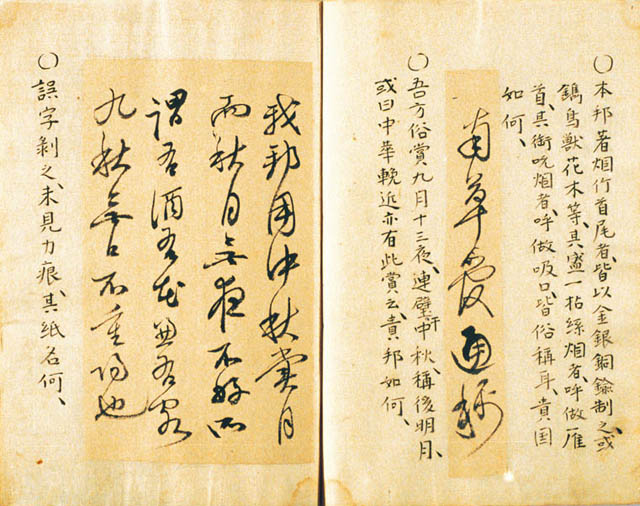 ○本邦著烟竹首尾者、皆以金銀銅鍮制之、或
鐫鳥獸花木等、其盛一拈絲烟者、呼做雁
首、其銜吮烟者、呼做吸口、皆俗稱耳、貴国
如何、
南草通稱
○吾方俗賞九月十三夜、連璧于中秋、稱後明月、
或曰中華輓近亦有此賞云、貴邦如何、
我邦用中秋賞月
而秋月無夜不好所
謂有酒有花兼有客
九秋無日不重陽也
○誤字剝之、未見刀痕、其紙名何、